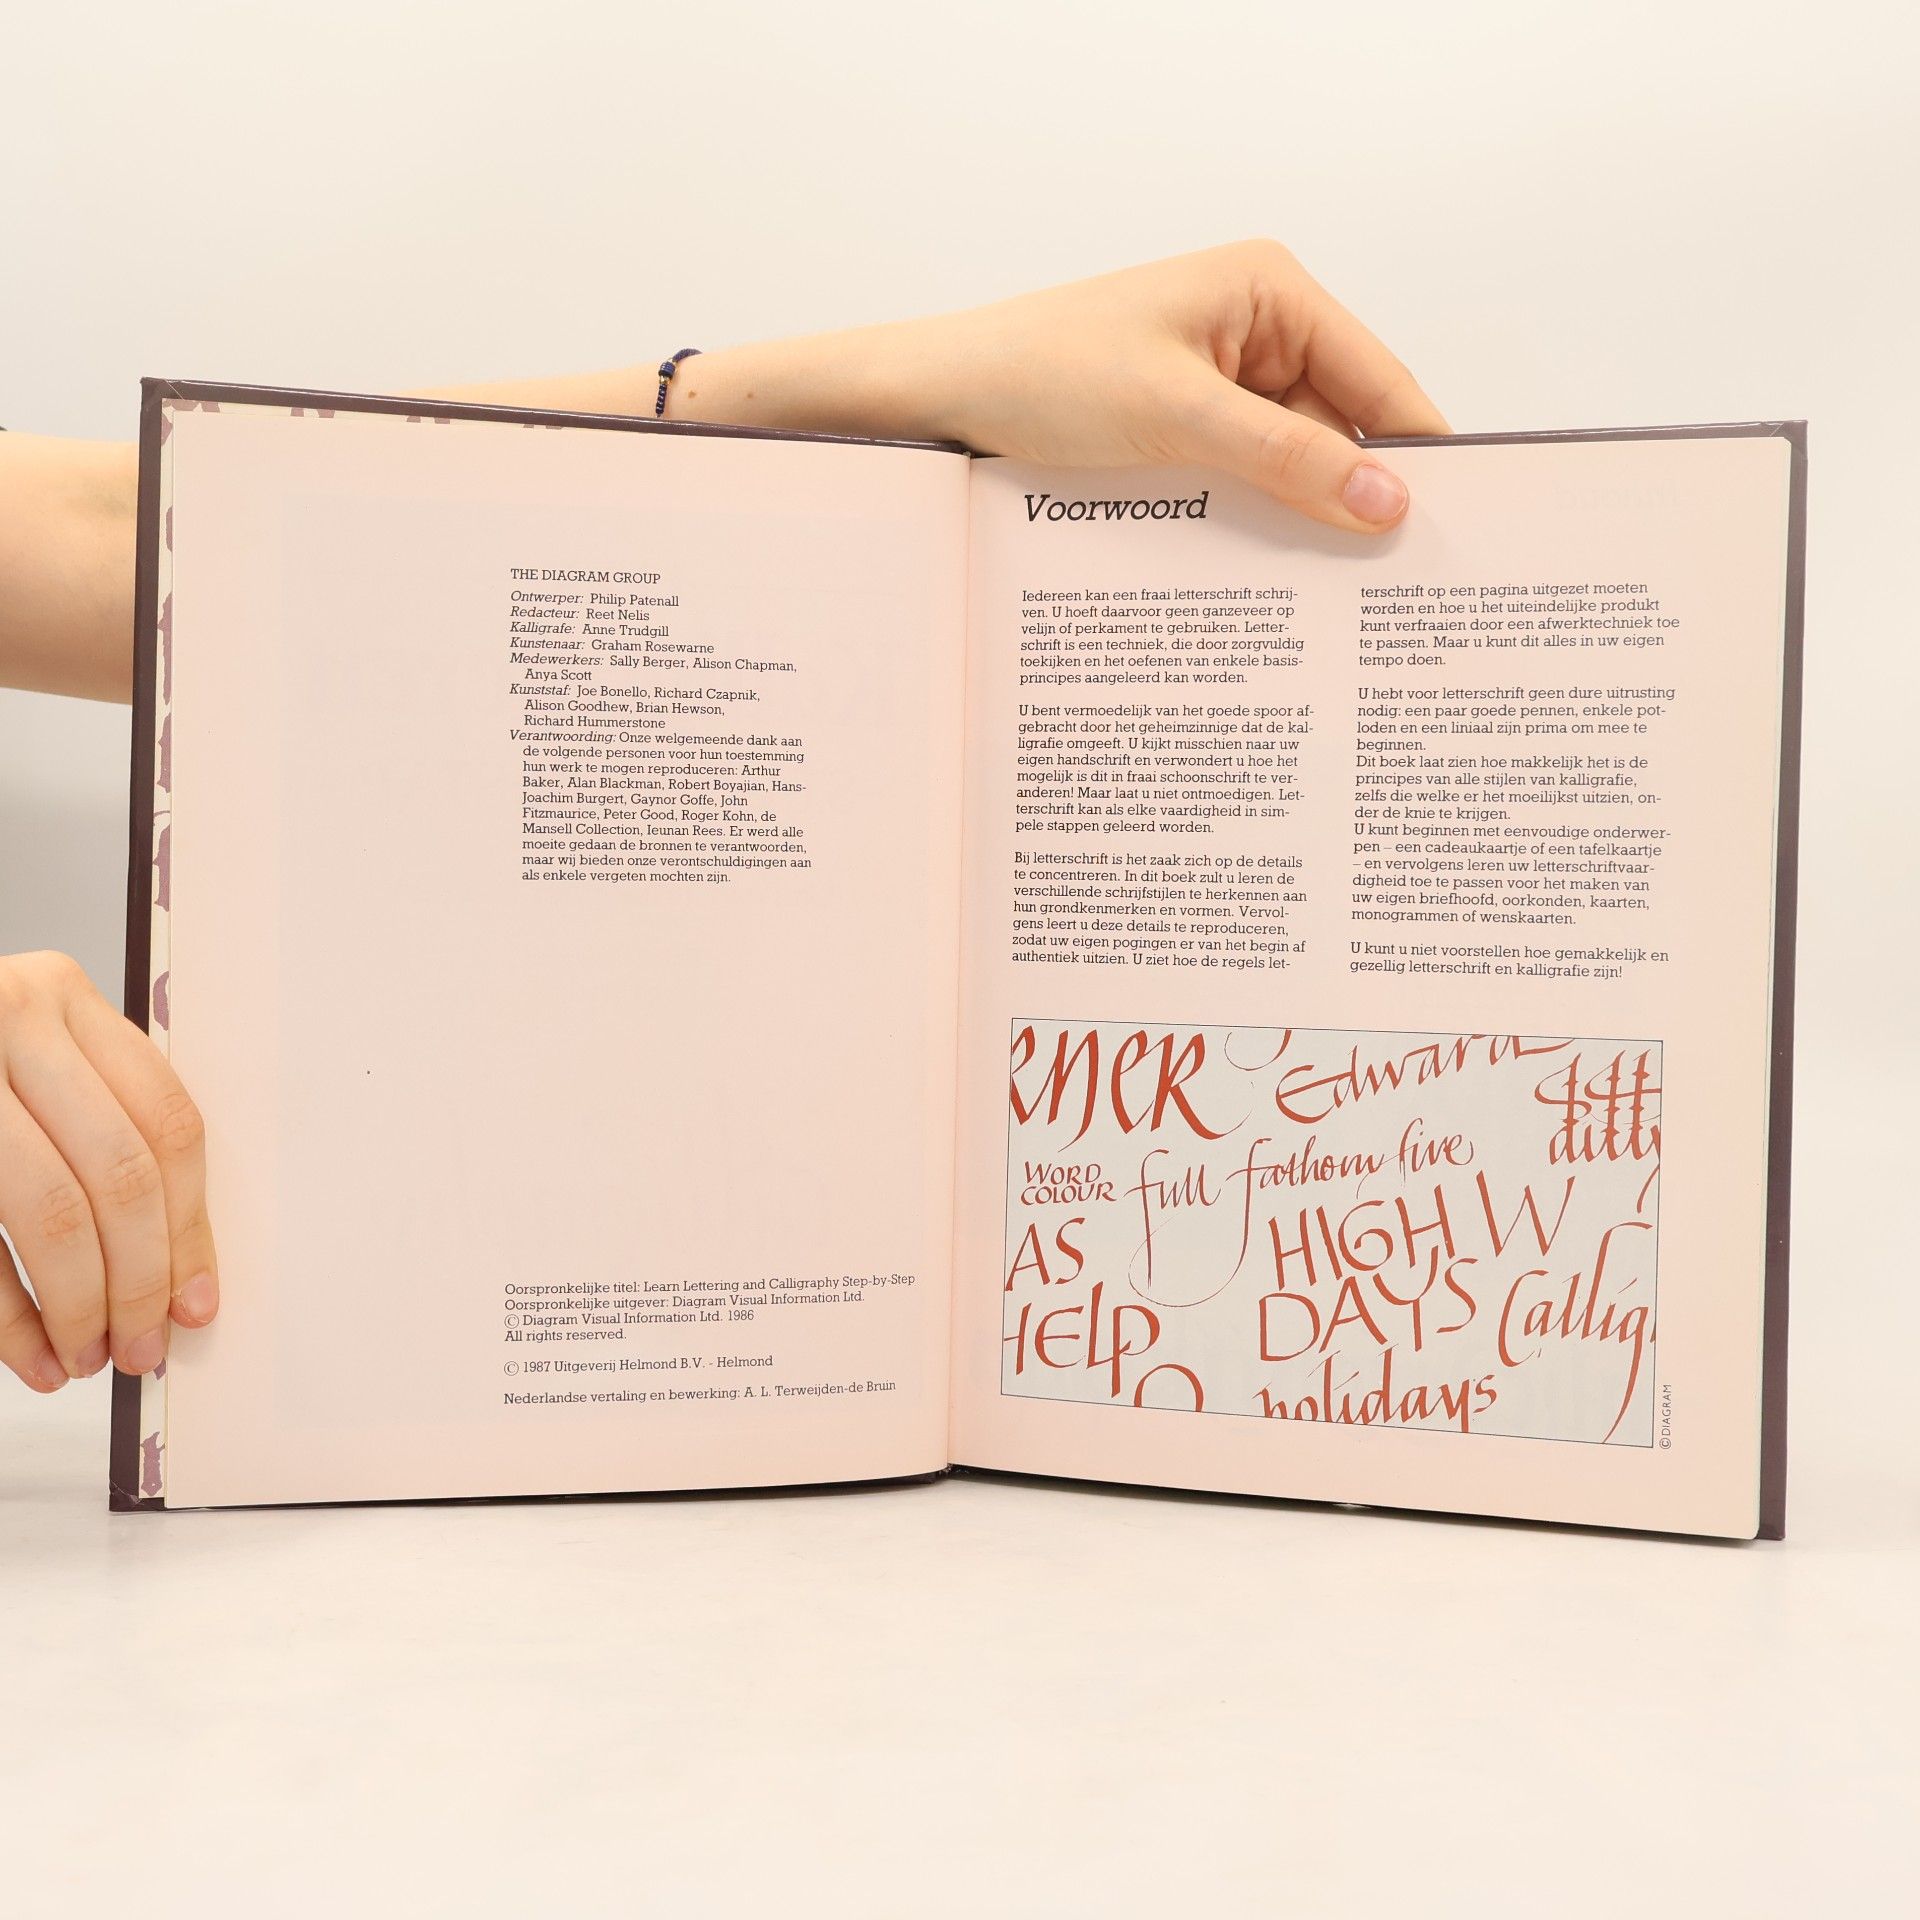 THE DIAGRAM GROUP
Ontwerper: Philip Patenall
Redacteur: Reet Nelis
Kalligrafe: Anne Trudgill
Kunstenaar: Graham Rosewarne
Medewerkers: Sally Berger, Alison Chapman,
Anya Scott
Kunststaf: Joe Bonello, Richard Czapnik,
Alison Goodhew, Brian Hewson,
Richard Hummerstone
Verantwoording: Onze welgemeende dank aan
de volgende personen voor hun toestemming
hun werk te mogen reproduceren: Arthur
Baker, Alan Blackman, Robert Boyajian, Hans-
Joachim Burgert, Gaynor Goffe, John
Fitzmaurice, Peter Good, Roger Kohn, de
Mansell Collection, Ieunan Rees. Er werd alle
moeite gedaan de bronnen te verantwoorden,
maar wij bieden onze verontschuldigingen aan
als enkele vergeten mochten zijn.
Oorspronkelijke titel: Learn Lettering and Calligraphy Step-by-Step
Oorspronkelijke uitgever: Diagram Visual Information Ltd.
© Diagram Visual Information Ltd. 1986
All rights reserved.
© 1987 Uitgeverij Helmond B.V. - Helmond
Nederlandse vertaling en bewerking: A. L. Terweijden-de Bruin
Voorwoord
Iedereen kan een fraai letterschrift schrij-
ven. U hoeft daarvoor geen ganzeveer op
velijn of perkament te gebruiken. Letter-
schrift is een techniek, die door zorgvuldig
toekijken en het oefenen van enkele basis-
principes aangeleerd kan worden.
U bent vermoedelijk van het goede spoor af-
gebracht door het geheimzinnige dat de kal-
ligrafie omgeeft. U kijkt misschien naar uw
eigen handschrift en verwondert u hoe het
mogelijk is dit in fraai schoonschrift te ver-
anderen! Maar laat u niet ontmoedigen. Let-
terschrift kan als elke vaardigheid in sim-
pele stappen geleerd worden.
Bij letterschrift is het zaak zich op de details
te concentreren. In dit boek zult u leren de
verschillende schrijfstijlen te herkennen aan
hun grondkenmerken en vormen. Vervol-
gens leert u deze details te reproduceren,
zodat uw eigen pogingen er van het begin af
authentiek uitzien. U ziet hoe de regels let-
terschrift op een pagina uitgezet moeten
worden en hoe u het uiteindelijke produkt
kunt verfraaien door een afwerktechniek toe
te passen. Maar u kunt dit alles in uw eigen
tempo doen.
U hebt voor letterschrift geen dure uitrusting
nodig: een paar goede pennen, enkele pot-
loden en een liniaal zijn prima om mee te
beginnen.
Dit boek laat zien hoe makkelijk het is de
principes van alle stijlen van kalligrafie,
zelfs die welke er het moeilijkst uitzien, on-
der de knie te krijgen.
U kunt beginnen met eenvoudige onderwer-
pen – een cadeaukaartje of een tafelkaartje
– en vervolgens leren uw letterschriftvaar-
digheid toe te passen voor het maken van
uw eigen briefhoofd, oorkonden, kaarten,
monogrammen of wenskaarten.
U kunt u niet voorstellen hoe gemakkelijk en
gezellig letterschrift en kalligrafie zijn!
Edward
WORD
COLOUR
full fathom five
AS
HIGH W
DAYS
HELP
Callig
holidays
© DIAGRAM